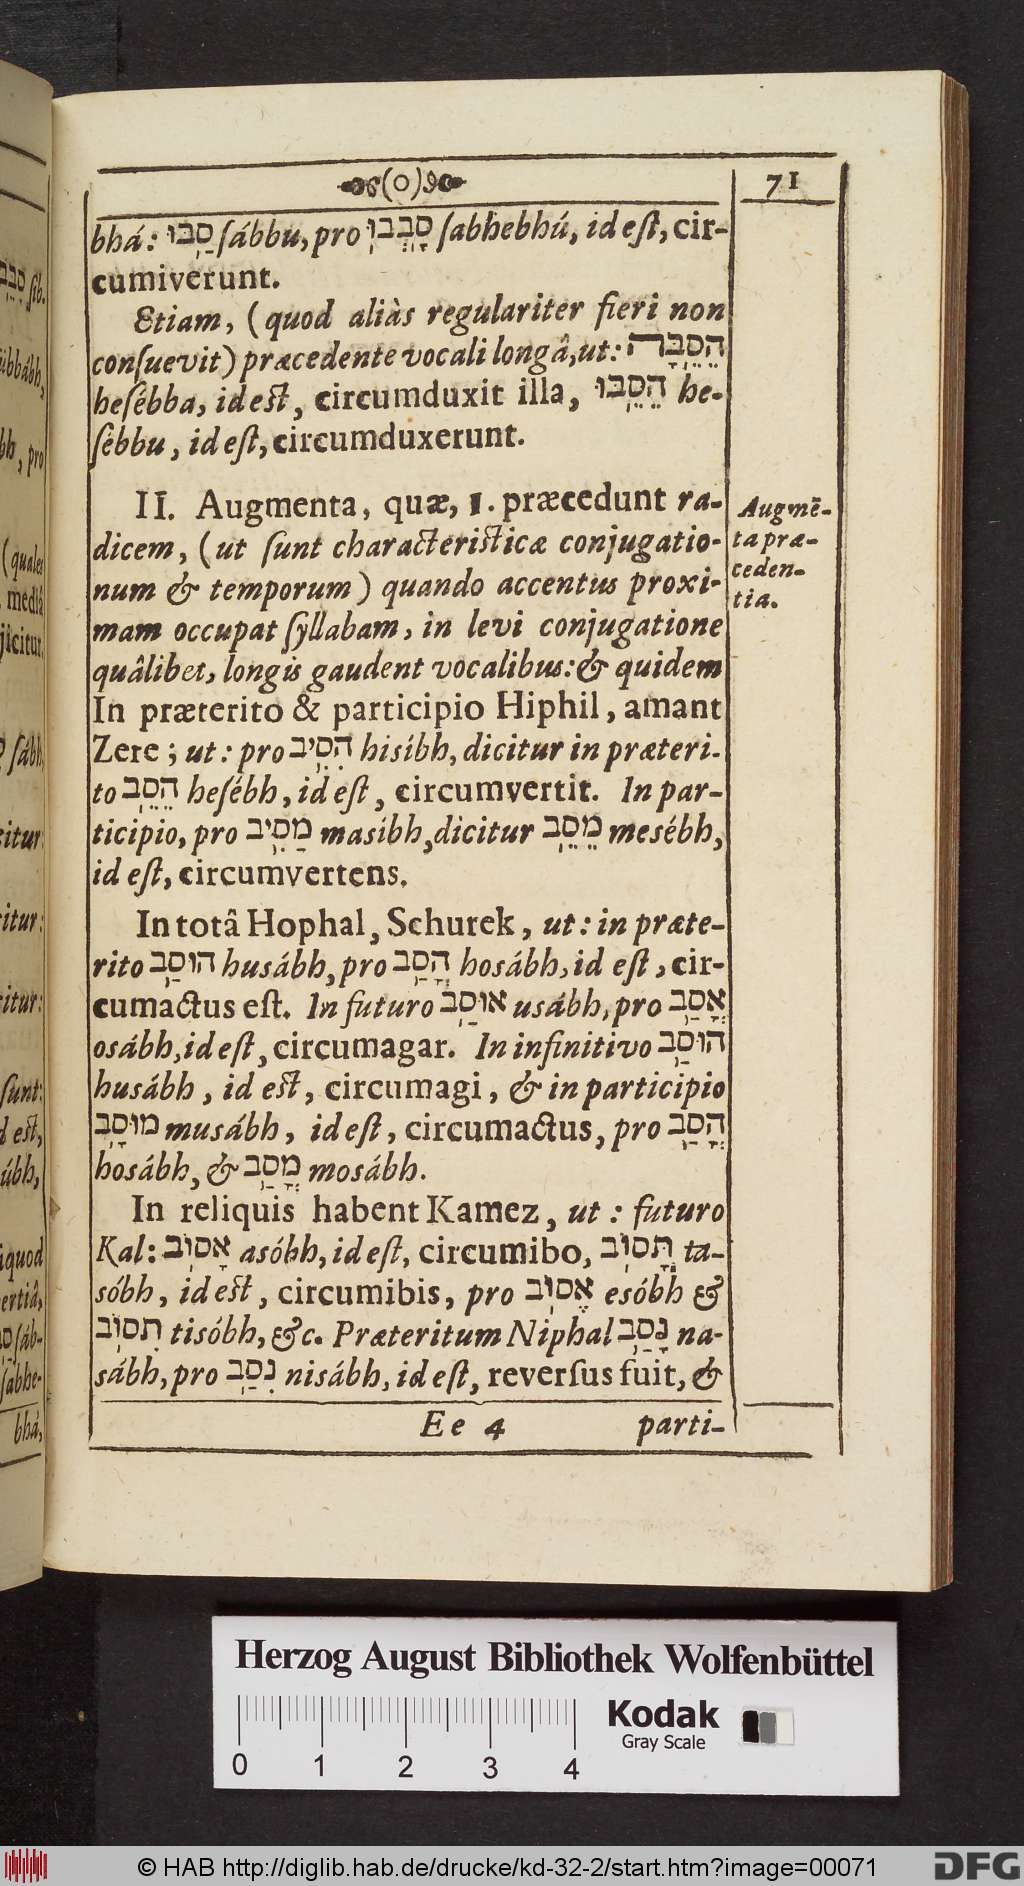 71
bhá: סַבּוּ ſábbu, pro סָבְבוּ ſabhebhú, id eſt, cir-
cumiverunt.
Etiam, (quod aliàs regulariter fieri non
conſuevit) præcedente vocali longâ, ut: הֵסֵבָּה
heſébba, id est, circumduxit illa, הֵסֵבּוּ he-
ſébbu, id eſt, circumduxerunt.
II. Augmenta, quæ, 1. præcedunt ra-
dicem, (ut ſunt characteristicæ conjugatio-
num & temporum) quando accentus proxi-
mam occupat ſyllabam, in levi conjugatione
quâlibet, longis gaudent vocalibus: & quidem
In præterito & participio Hiphil, amant
Zere; ut: pro הִסִיב hisíbh, dicitur in præteri-
to הֵסֵב heſébh, id eſt, circumvertit. In par-
ticipio, pro מַסִיב masíbh, dicitur מֵסֵב mesébh,
id eſt, circumvertens.
Augmē-
ta præ-
ceden-
tia.
In totâ Hophal, Schurek, ut: in præte-
rito הוּסַב husábh, pro הָסַב hosábh, id eſt, cir-
cumactus eſt. In futuro אוּסַב usábh, pro אָסַב
osábh, id eſt, circumagar. In infinitivo הוּסַב
husábh, id est, circumagi, & in participio
מוּסָב musábh, id eſt, circumactus, pro הָסַב
hosábh, & מָסַב mosábh.
In reliquis habent Kamez, ut: futuro
Kal: אָסוֹב asóbh, id eſt, circumibo, תָּסוֹב ta-
sóbh, id est, circumibis, pro אֶסוֹב esóbh &
תִסוֹב tisóbh, &c. Præteritum Niphal נָסַב na-
sábh, pro נִסַב nisábh, id eſt, reverſus fuit, &
Ee 4 parti-
Herzog August Bibliothek Wolfenbüttel
Kodak
Gray Scale
0 1 2 3 4
© HAB http://diglib.hab.de/drucke/kd-32-2/start.htm?image=00071
DFG